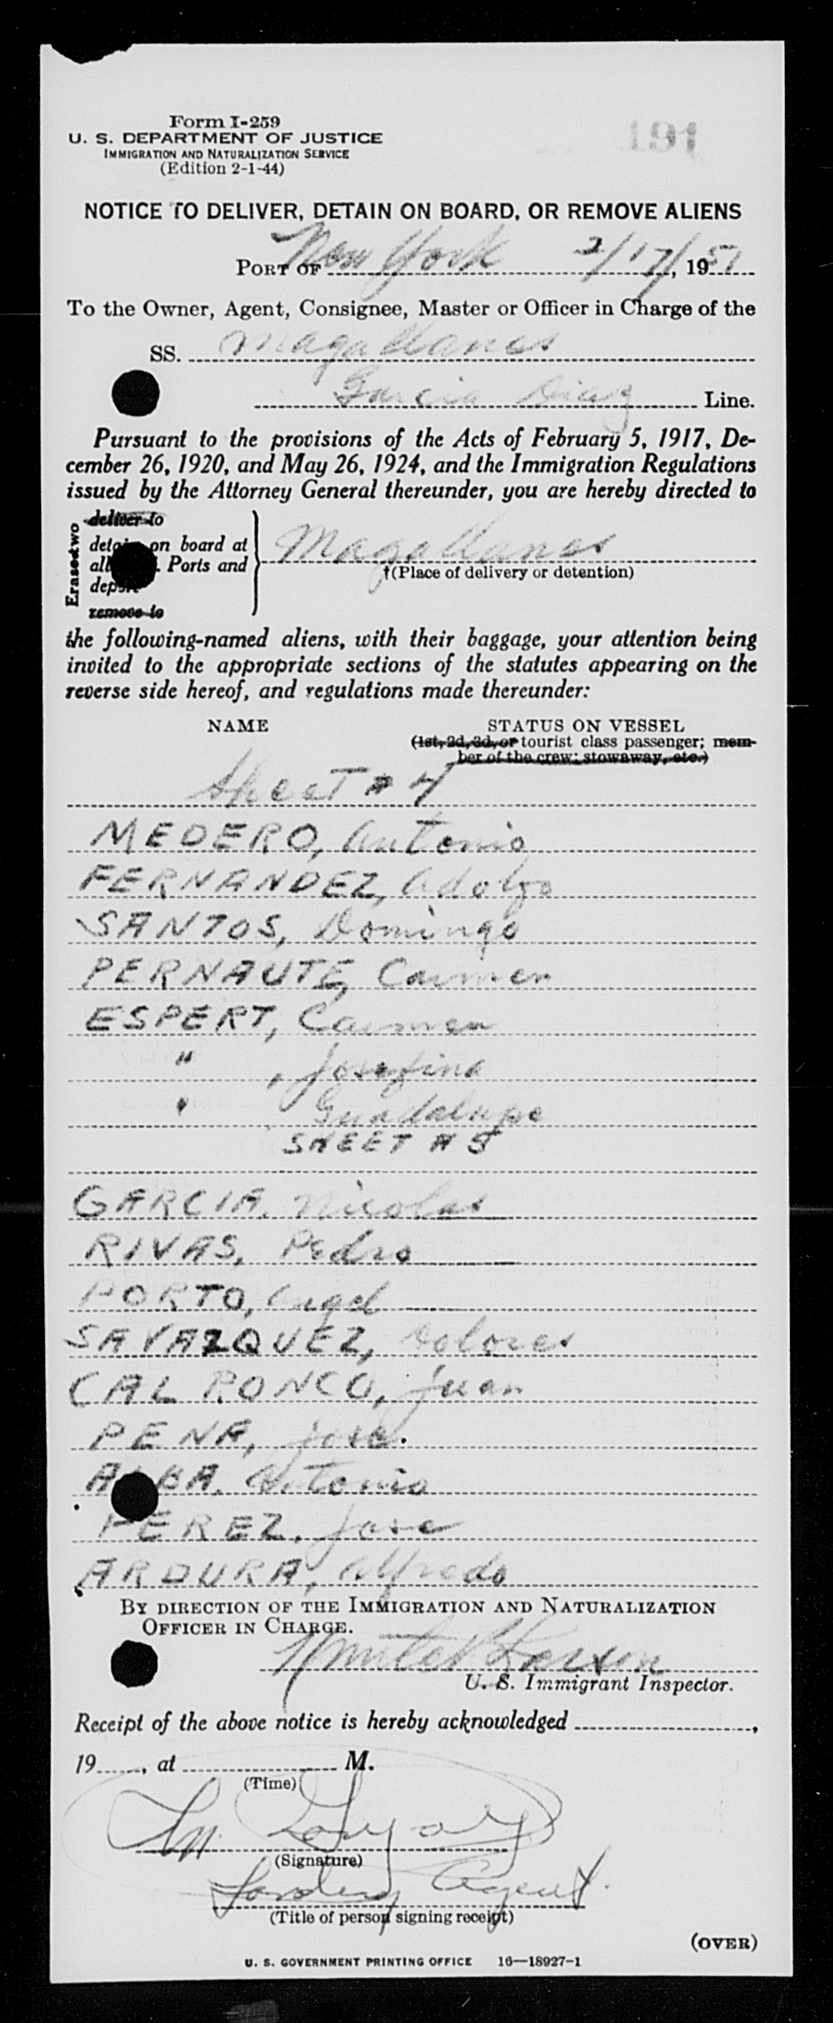 Form I-259
191
U. S. DEPARTMENT OF JUSTICE
IMMIGRATION AND NATURALIZATION SERVICE
(Edition 2-1-44)
NOTICE TO DELIVER, DETAIN ON BOARD, OR REMOVE ALIENS
PORT OF New York 2/17/, 1951
To the Owner, Agent, Consignee, Master or Officer in Charge of the
SS. Magallanes
Garcia Diaz Line.
Pursuant to the provisions of the Acts of February 5, 1917, De-
cember 26, 1920, and May 26, 1924, and the Immigration Regulations
issued by the Attorney General thereunder, you are hereby directed to
Erase two
deliver to
detain on board at
all Ports and
deport
remove to
Magallanes
†(Place of delivery or detention)
the following-named aliens, with their baggage, your attention being
invited to the appropriate sections of the statutes appearing on the
reverse side hereof, and regulations made thereunder:
NAME STATUS ON VESSEL
(1st, 2d, 3d, or tourist class passenger; mem-
ber of the crew; stowaway, etc.)
Sheet # 4
MEDERO, Antonio
FERNANDEZ, Adolfo
SANTOS, Domingo
PERNAUTE, Carmen
ESPERT, Carmen
" , Josefina
" Guadalupe
SHEET # 5
GARCIA, Nicolas
RIVAS, Pedro
PORTO, Angel
SAVAZQUEZ, Dolores
CAL RONCO, Juan
PENA, Jose.
ALBA, Antonio
PEREZ, Jose
ARDURA, Alfredo
BY DIRECTION OF THE IMMIGRATION AND NATURALIZATION
OFFICER IN CHARGE.
U. S. Immigrant Inspector.
Receipt of the above notice is hereby acknowledged ,
19 , at M.
(Time)
(Signature)
Agent.
(Title of person signing receipt)
(OVER)
U. S. GOVERNMENT PRINTING OFFICE 16—18927-1